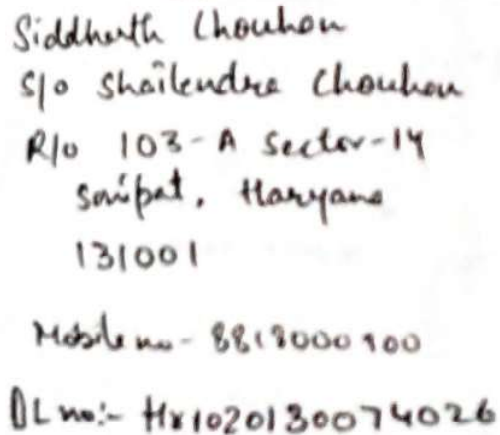 Siddharth Chouhan
S/o Shailendra Chouhan
R/o 103-A Sector-14
Sonipat, Haryana
131001
Mobile no - 8818000900
DL no:- Hr1020130074026